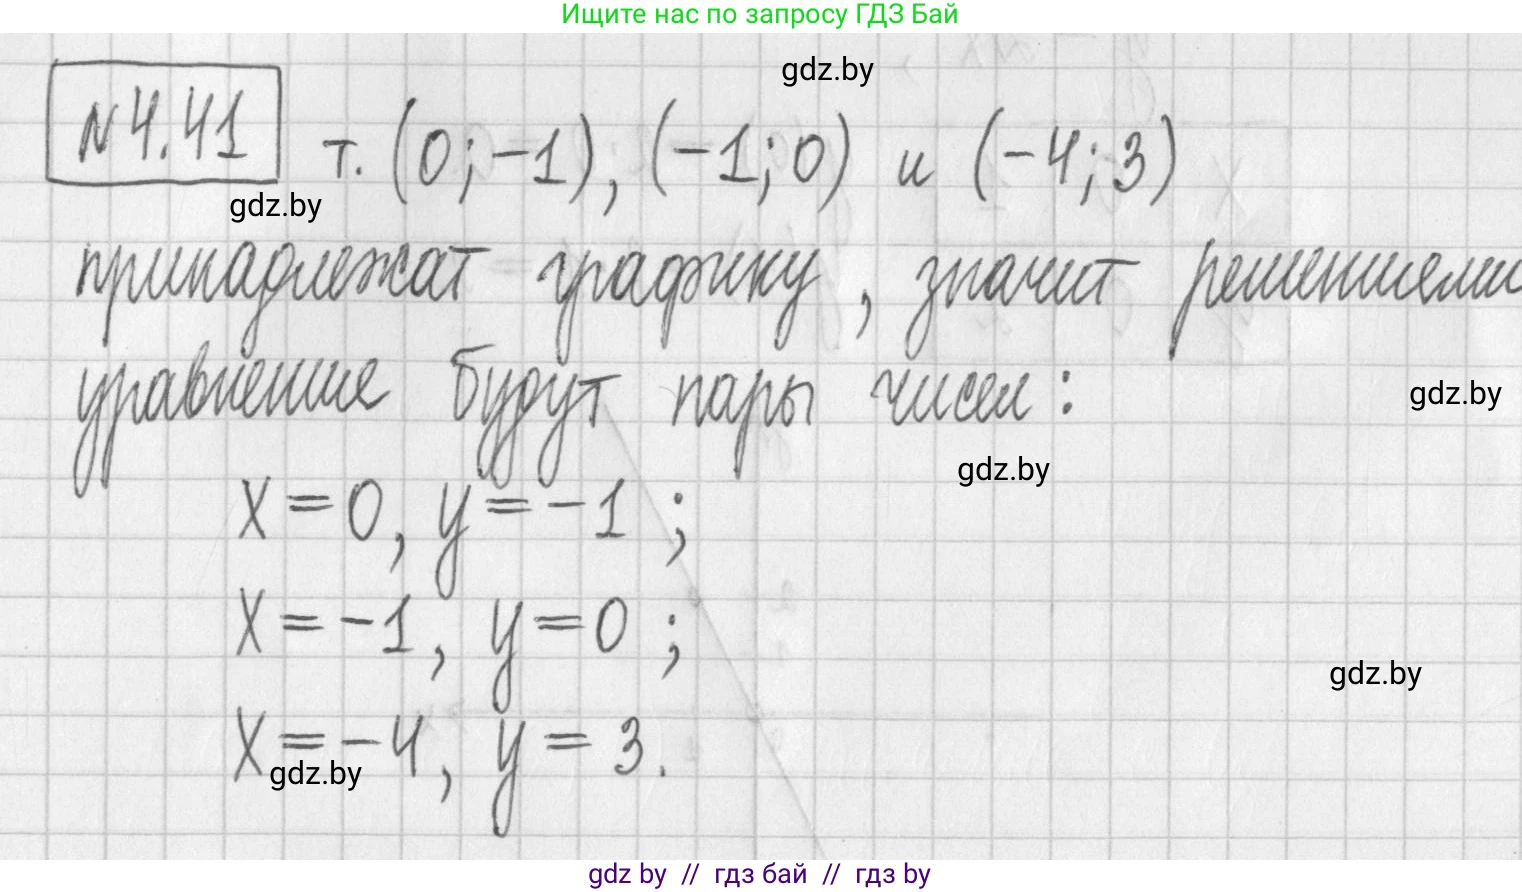 Ищите нас по запросу ГДЗ Бай
gdz.by
№4.41 т. (0; -1), (-1; 0) и (-4; 3)
gdz.by
принадлежат графику, значит решениями
уравнение будут пары чисел:
gdz.by
gdz.by
x = 0, y = -1 ;
x = -1, y = 0 ;
gdz.by
x = -4, y = 3.
gdz.by
gdz by // гдз бай // гдз by